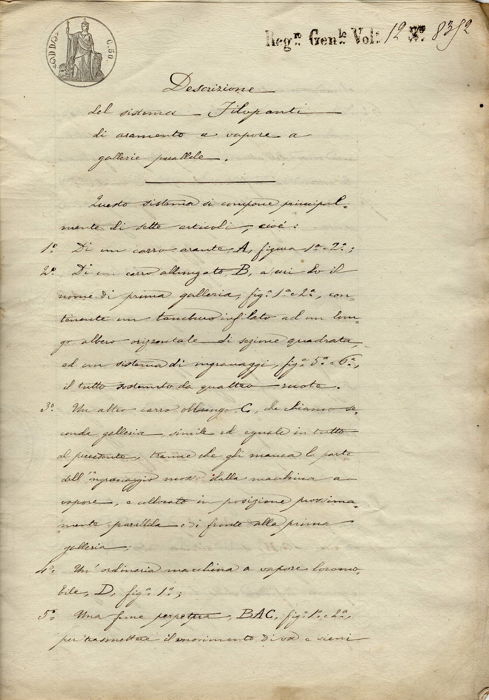 Reg.° Gen.le Vol. 12 N.° 8392
C. 50
Descrizione
del sistema Filopanti
di aramento a vapore a
gallerie parallele.
Questo sistema si compone principal-
mente di sette articoli, cioè:
1.° Di un carro arante, A, figura 1.a e 2.a;
2.° Di un carro allungato, B, a cui do il
nome di prima galleria, fig.e 1.a e 2.a, con-
tenente un tamburo infilato ad un lun-
go albero orizontale di sezione quadrata,
ed un sistema di ingranaggi, fig.e 5.a e 6.a,
il tutto sostenuto da quattro ruote.
3.° Un altro carro oblungo C, che chiamo se-
conda galleria, simile ed eguale in tutto
al precedente, tranne che gli manca la parte
dell'ingranaggio mosso dalla macchina a
vapore, e collocato in posizione prossima-
mente parallela, e di fronte alla prima
galleria;
4.° Un'ordinaria macchina a vapore locomo-
bile, D, fig.a 1.a;
5.° Una fune perpetua, BAC, fig.e 1.a e 2.a,
per trasmettere il movimento di va e vieni